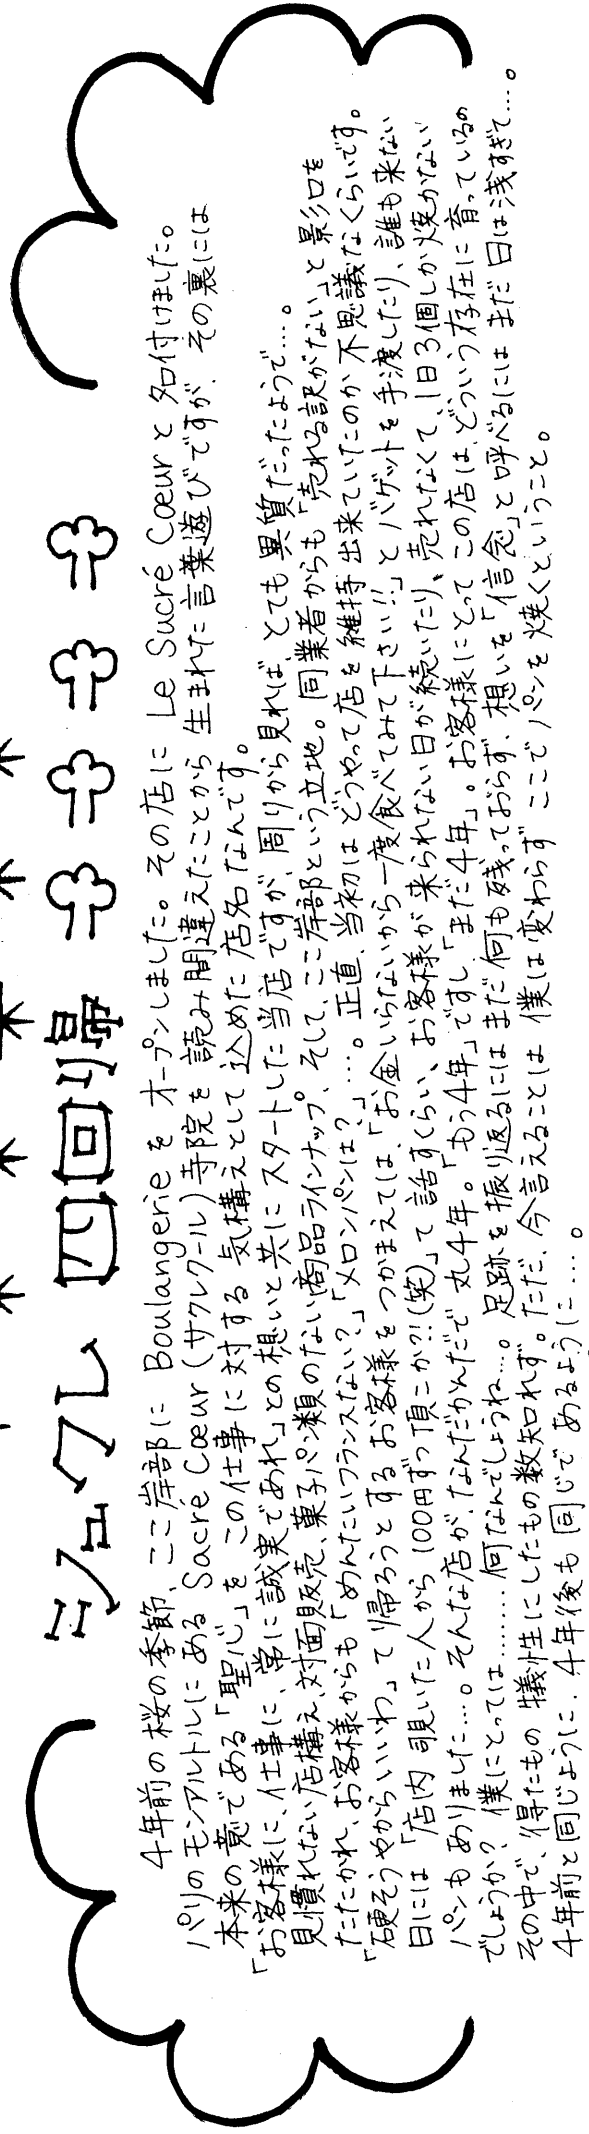 シュクレ 四回帰
4年前の桜の季節、ここ岸部に Boulangerieを オープンしました。その店に Le Sucré Cœurと名付けました。
パリのモンマルトルにある Sacré Cœur(サクレクール)寺院を 読み間違えたことから 生まれた言葉遊びですが、その裏には
本来の意である「聖心」を この仕事に対する 気構えとして 込めた 店名なんです。
「お客様に、仕事に、常に誠実であれ」との想いと共に スタートした当店ですが、周りから見れば、とても異質だったようで…。
見慣れない店構え、対面販売、菓子パン類のない商品ラインナップ、そして、ここ岸部という立地。同業者からも「売れる訳がない」と影口を
たたかれ、お客様からも「めんたいフランスない?」「メロンパンは?」…。正直、当初は どうやって店を維持出来ていたのか 不思議なくらいです。
「硬そうやからいいわ」て帰ろうとするお客様をつかまえては、「お金いらないから一度食べてみて下さい!!」とバゲットを手渡したり、誰も来ない
日には「店内覗いた人から100円ずつ頂こか?!(笑)」て話すくらい、お客様が来られない日が続いたり、売れなくて、1日3個しか焼かない
パンもありました…。そんな店が、なんだかんだで丸4年。「もう4年」ですし「まだ4年」。お客様にとってこの店は、どういう存在に育っているの
でしょうか?僕にとっては………何なんでしょうね…。足跡を振り返るにはまだ何も残っておらず、想いを「信念」と呼べるには まだ日は浅すぎて…。
その中で、得たもの犠牲にしたもの数知れず。ただ、今言えることは 僕は変わらず ここでパンを焼くということ。
4年前と同じように、4年後も同じであるように…。